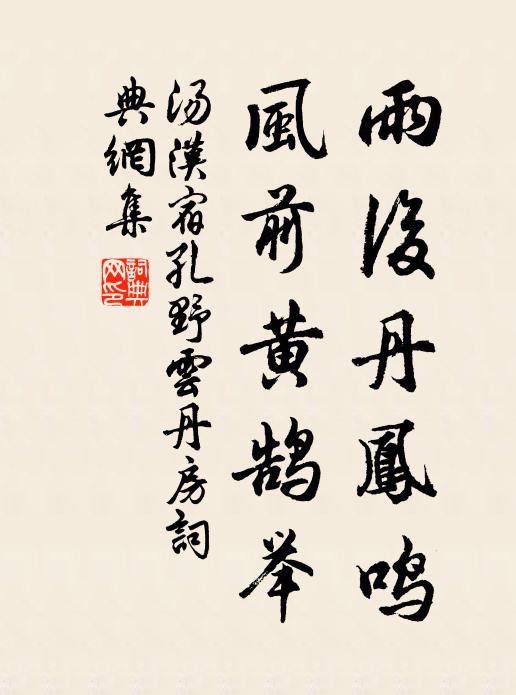 雨後丹鳳鳴
風前黄鹄举
汤漢宿孔野雲丹房詞
典網集
詞典網印